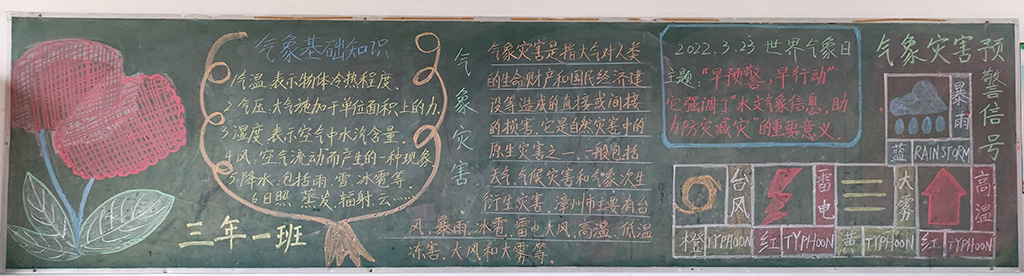 气象基础知识
1气温.表示物体冷热程度.
2气压.大气施加于单位面积上的力.
3湿度.表示空气中水汽含量.
4风.空气流动而产生的一种现象
5降水.包括雨.雪.冰雹等.
6日照.蒸发.辐射.云……
三年一班
气象灾害
气象灾害是指大气对人类
的生命财产和国民经济建
设等造成的直接或间接
的损害.它是自然灾害中的
原生灾害之一.一般包括
天气.气候灾害和气象次生
衍生灾害.漳州市主要有台
风,暴雨,冰雹,雷电大风,高温,低温
冻害,大风和大雾等.
2022.3.23 世界气象日
主题:"早预警,早行动"
它强调了"水文气象信息,助
力防灾减灾"的重要意义.
气象灾害预警信号
暴雨
蓝 RAINSTORM
台风
橙 TYPHOON
雷电
红 TYPHOON
大雾
黄 TYPHOON
高温
红 TYPHOON